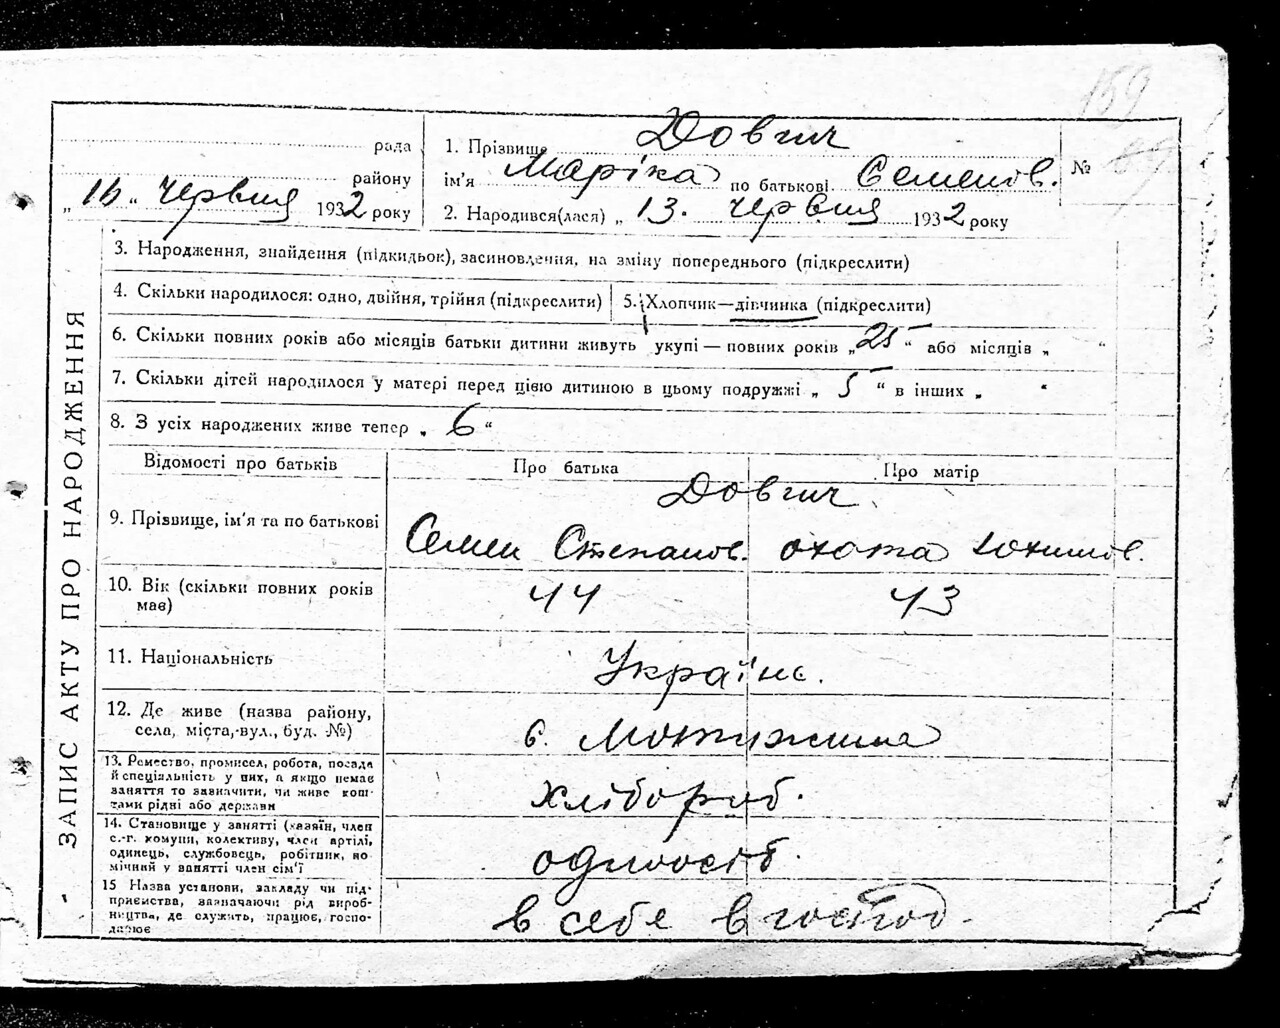 159
рада
району
„ 16 „ Червня 1932 року
1. Прізвище Довгич
ім'я Маріка по батькові Семенов.
2. Народився(лася) „ 13. червня 1932 року
№
ЗАПИС АКТУ ПРО НАРОДЖЕННЯ
3. Народження, знайдення (підкидьок), засиновлення, на зміну попереднього (підкреслити)
4. Скільки народилося: одно, двійня, трійня (підкреслити)
5. Хлопчик—дівчинка (підкреслити)
6. Скільки повних років або місяців батьки дитини живуть укупі — повних років „ 25 “ або місяців „ “
7. Скільки дітей народилося у матері перед цією дитиною в цьому подружжі „ 5 “ в інших „ “
8. З усіх народжених живе тепер „ 6 “
Відомості про батьків
Про батька
Про матір
9. Прізвище, ім'я та по батькові
Довгич
Семен Степанов. охота
10. Вік (скільки повних років
має)
44
43
11. Національність
Україне.
12. Де живе (назва району,
села, міста, вул., буд. №)
с. Мотижина
13. Ремество, промисел, робота, посада
й спеціяльність у них, а якщо немає
заняття то зазначити, чи живе кош-
тами рідні або держави
хлібороб.
14. Становище у занятті (хазяїн, член
с.-г. комуни, колективу, член артілі,
одинець, службовець, робітник, по
мічний у занятті член сім'ї
одноосіб.
15 Назва установи, закладу чи під-
приємства, зазначаючи рід вироб-
ництва, де служить, працює, госпо-
дарює
в себе в господ.